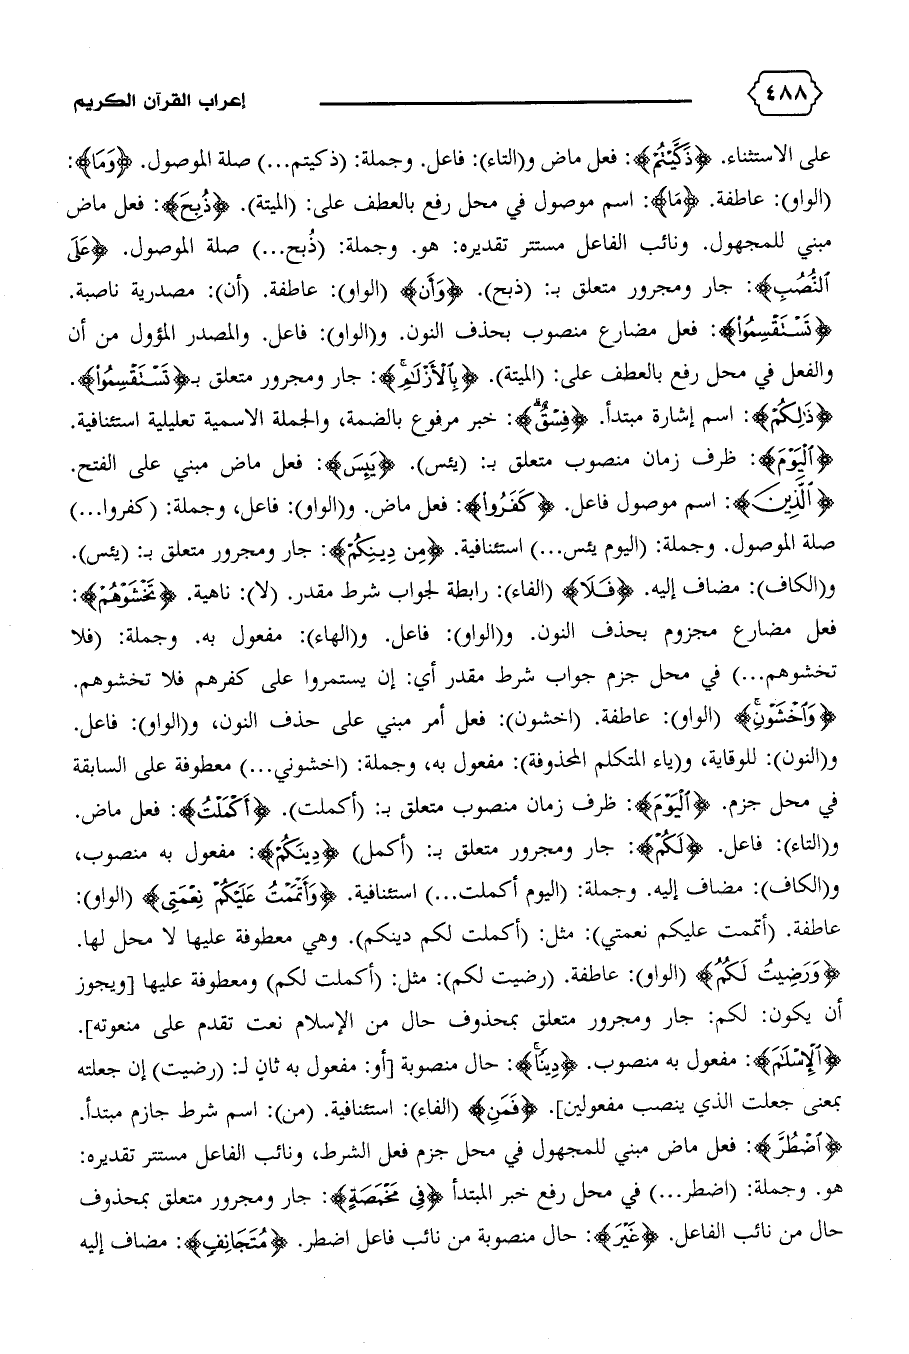 ٤٨٨ إعراب القرآن الكريم
على الاستثناء. ﴿ذَكَّيْتُمْ﴾: فعل ماض و(التاء): فاعل. وجملة: (ذكيتم...) صلة الموصول. ﴿وَمَا﴾:
(الواو): عاطفة. ﴿مَا﴾: اسم موصول في محل رفع بالعطف على: (الميتة). ﴿ذُبِحَ﴾: فعل ماض
مبني للمجهول. ونائب الفاعل مستتر تقديره: هو. وجملة: (ذُبح...) صلة الموصول. ﴿عَلَى
ٱلنُّصُبِ﴾: جار ومجرور متعلق بـ: (ذبح). ﴿وَأَن﴾ (الواو): عاطفة. (أن): مصدرية ناصبة.
﴿تَسْتَقْسِمُوا۟﴾: فعل مضارع منصوب بحذف النون. و(الواو): فاعل. والمصدر المؤول من أن
والفعل في محل رفع بالعطف على: (الميتة). ﴿بِٱلْأَزْلَٰمِ ۚ﴾: جار ومجرور متعلق بـ﴿تَسْتَقْسِمُوا۟﴾.
﴿ذَٰلِكُمْ﴾: اسم إشارة مبتدأ. ﴿فِسْقٌ ۗ﴾: خبر مرفوع بالضمة، والجملة الاسمية تعليلية استئنافية.
﴿ٱلْيَوْمَ﴾: ظرف زمان منصوب متعلق بـ: (يئس). ﴿يَئِسَ﴾: فعل ماض مبني على الفتح.
﴿ٱلَّذِينَ﴾: اسم موصول فاعل. ﴿كَفَرُوا۟﴾: فعل ماض. و(الواو): فاعل، وجملة: (كفروا...)
صلة الموصول. وجملة: (اليوم يئس...) استئنافية. ﴿مِن دِينِكُمْ﴾: جار ومجرور متعلق بـ: (يئس).
و(الكاف): مضاف إليه. ﴿فَلَا﴾ (الفاء): رابطة لجواب شرط مقدر. (لا): ناهية. ﴿تَخْشَوْهُمْ﴾:
فعل مضارع مجزوم بحذف النون. و(الواو): فاعل. و(الهاء): مفعول به. وجملة: (فلا
تخشوهم...) في محل جزم جواب شرط مقدر أي: إن يستمروا على كفرهم فلا تخشوهم.
﴿وَٱخْشَوْنِ ۚ﴾ (الواو): عاطفة. (اخشون): فعل أمر مبني على حذف النون، و(الواو): فاعل.
و(النون): للوقاية، و(ياء المتكلم المحذوفة): مفعول به، وجملة: (اخشوني...) معطوفة على السابقة
في محل جزم. ﴿ٱلْيَوْمَ﴾: ظرف زمان منصوب متعلق بـ: (أكملت). ﴿أَكْمَلْتُ﴾: فعل ماض.
و(التاء): فاعل. ﴿لَكُمْ﴾: جار ومجرور متعلق بـ: (أكمل) ﴿دِينَكُمْ﴾: مفعول به منصوب،
و(الكاف): مضاف إليه. وجملة: (اليوم أكملت...) استئنافية. ﴿وَأَتْمَمْتُ عَلَيْكُمْ نِعْمَتِى﴾ (الواو):
عاطفة. (أتممت عليكم نعمتي): مثل: (أكملت لكم دينكم). وهي معطوفة عليها لا محل لها.
﴿وَرَضِيتُ لَكُمُ﴾ (الواو): عاطفة. (رضيت لكم): مثل: (أكملت لكم) ومعطوفة عليها [ويجوز
أن يكون: لكم: جار ومجرور متعلق بمحذوف حال من الإسلام نعت تقدم على منعوته].
﴿ٱلْإِسْلَٰمَ﴾: مفعول به منصوب. ﴿دِينًا ۚ﴾: حال منصوبة [أو: مفعول به ثانٍ لـ: (رضيت) إن جعلته
بمعنى جعلت الذي ينصب مفعولين]. ﴿فَمَنِ﴾ (الفاء): استئنافية. (من): اسم شرط جازم مبتدأ.
﴿ٱضْطُرَّ﴾: فعل ماض مبني للمجهول في محل جزم فعل الشرط، ونائب الفاعل مستتر تقديره:
هو. وجملة: (اضطر...) في محل رفع خبر المبتدأ ﴿فِى مَخْمَصَةٍ﴾: جار ومجرور متعلق بمحذوف
حال من نائب الفاعل. ﴿غَيْرَ﴾: حال منصوبة من نائب فاعل اضطر. ﴿مُتَجَانِفٍ﴾: مضاف إليه